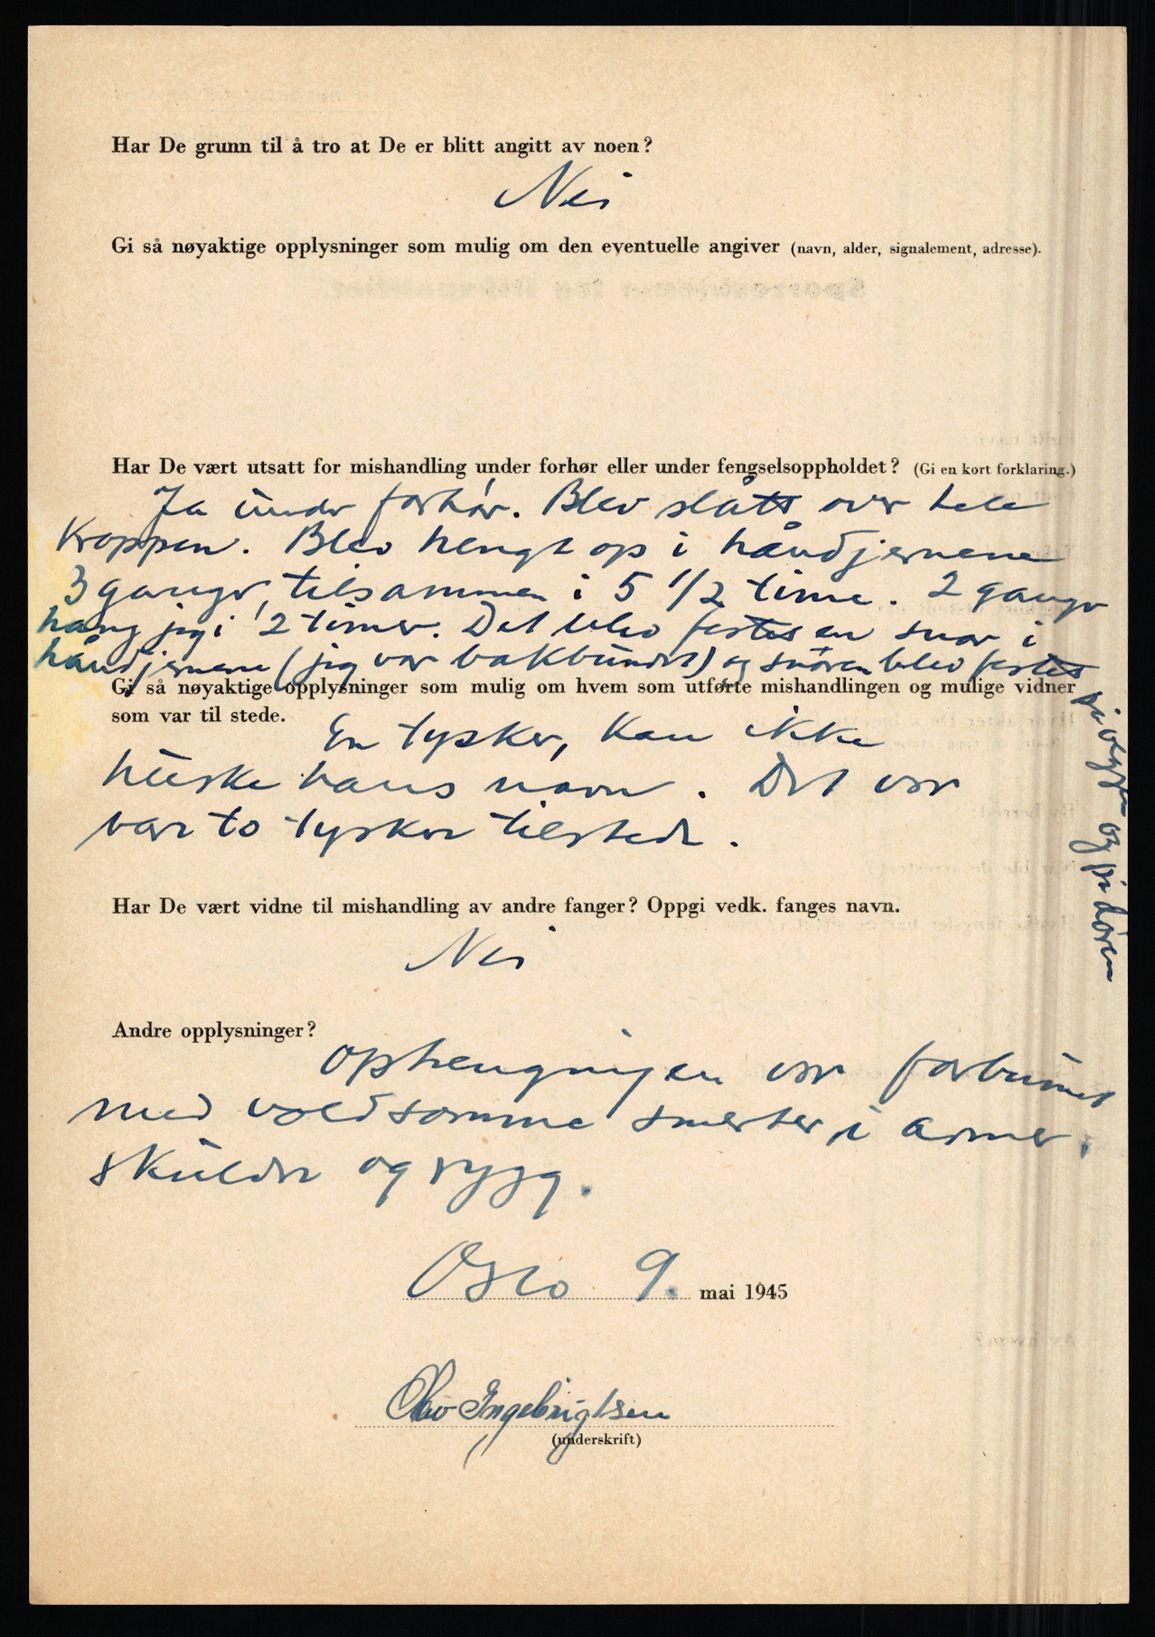 Har De grunn til å tro at De er blitt angitt av noen?
Nei
Gi så nøyaktige opplysninger som mulig om den eventuelle angiver (navn, alder, signalement, adresse).
Har De vært utsatt for mishandling under forhør eller under fengselsoppholdet? (Gi en kort forklaring.)
Ja under forhör. Blev slått over hele
kroppen. Blev hengt op i håndjernene
3 ganger, tilsammen i 5 1/2 time. 2 ganger
hang jeg i 2 timer. Det blev festet en snor i
håndjernene (jeg var bakbundet) og snoren blev festet
i veggen og på dören
Gi så nøyaktige opplysninger som mulig om hvem som utførte mishandlingen og mulige vidner
som var til stede.
En tysker, kan ikke
huske hans navn. Det var
bare to tyskere tilstede.
Har De vært vidne til mishandling av andre fanger? Oppgi vedk. fanges navn.
Nei
Andre opplysninger?
Ophengningen var forbundet
med voldsomme smerter i armer,
skuldre og rygg.
Oslo 9. mai 1945
Olav Ingebrigtsen
(underskrift)